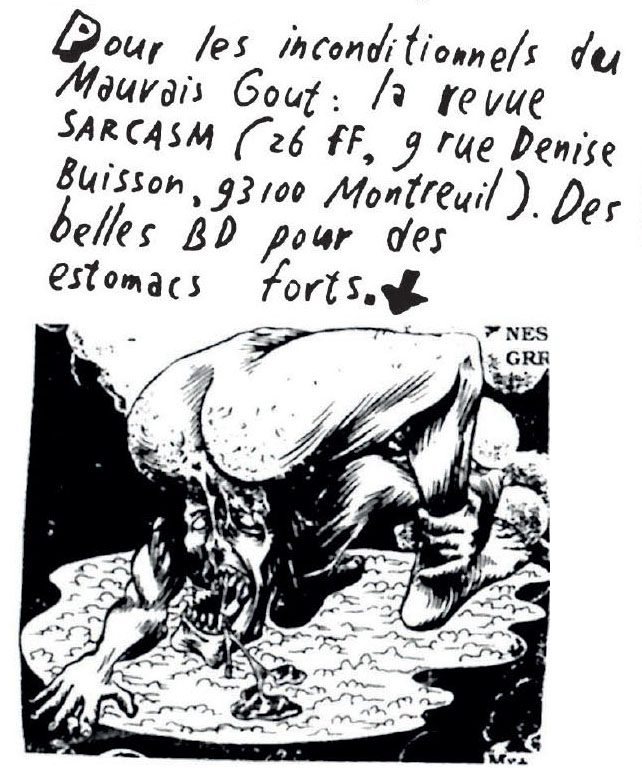 Pour les inconditionnels du
Mauvais Gout : la revue
SARCASM ( 26 FF, 9 rue Denise
Buisson, 93100 Montreuil ). Des
belles BD pour des
estomacs forts.
NES
GRR